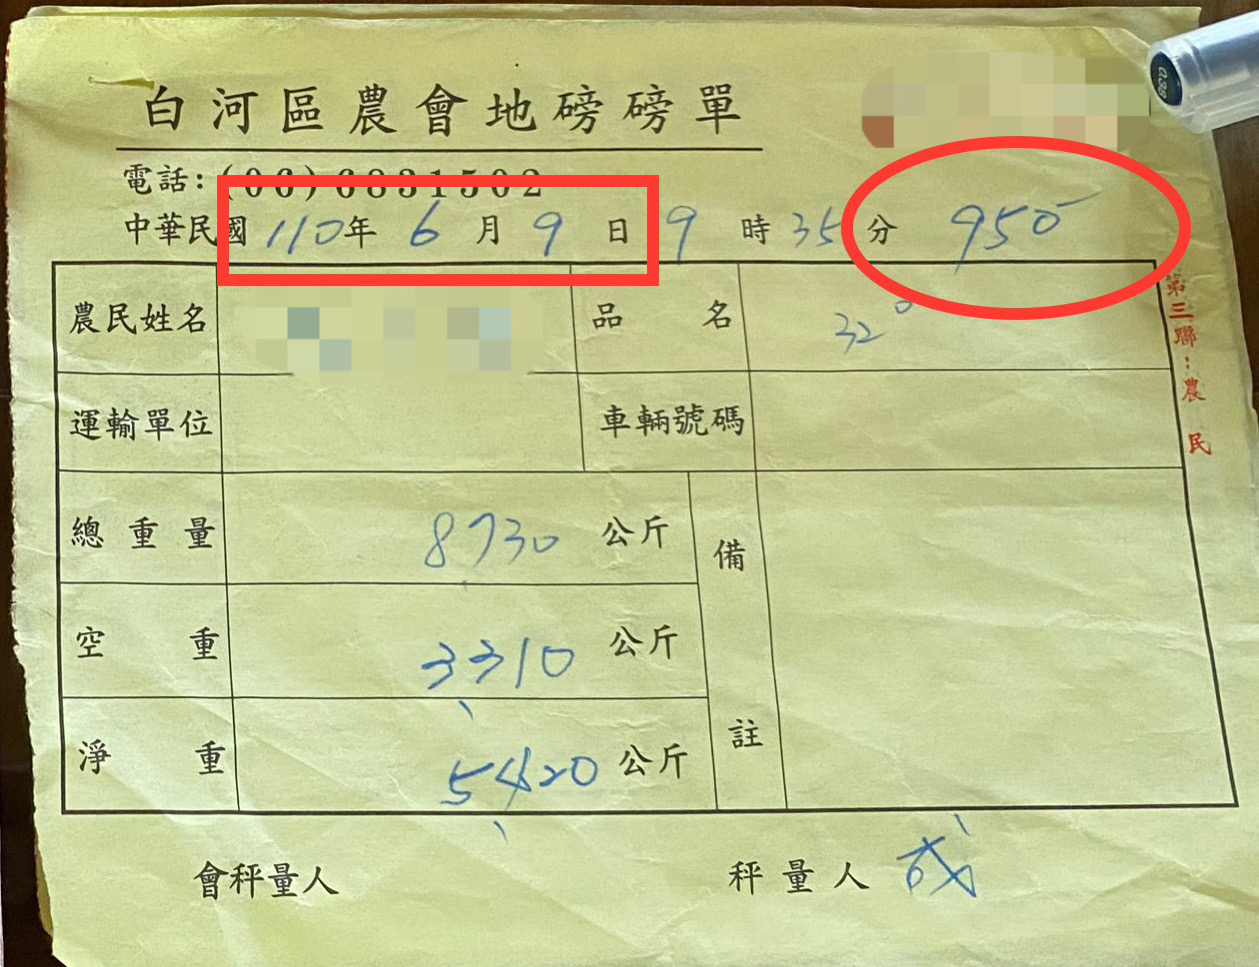 白河區農會地磅磅單
電話:(06)6831502
中華民國110年6月9日9時35分 950
農民姓名 品名 32°
運輸單位 車輛號碼
總重量 8730 公斤 備註
空重 3310 公斤
淨重 5420 公斤
會秤量人 秤量人
第三聯:農民